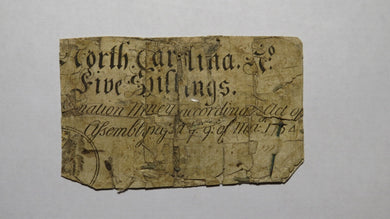 North Carolina. No.
Five Shillings.
mation Money according to Act of
Assembly 9. of Mar. 1754